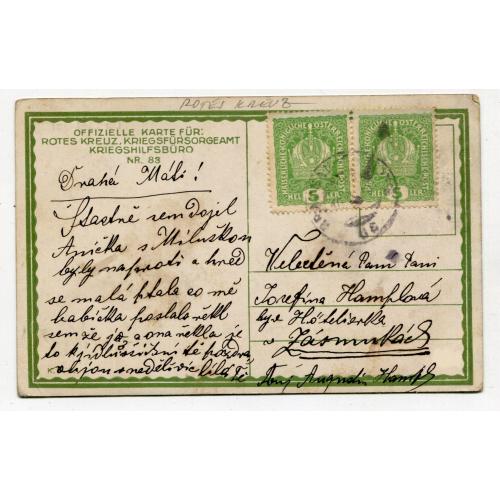 ROTES KREUZ
OFFIZIELLE KARTE FÜR:
ROTES KREUZ, KRIEGSFÜRSORGEAMT
KRIEGSHILFSBÜRO
NR. 83
KAISERLICHE KÖNIGLICHE ÖSTERREICHISCHE POST
5 HELLER
KAISERLICHE KÖNIGLICHE ÖSTERREICHISCHE POST
5 HELLER
Drahá Máti!
Šťastně sem dojil
Anička s Miluškou
byly naproti a hned
se malá ptala co mě
babička poslala řekl
sem že já, a ona řekla je
to
Velectěná Paní Paní
Josefína Hamplová
Hôtelierka
v Zásmukách
Tvůj Augustin Hampl